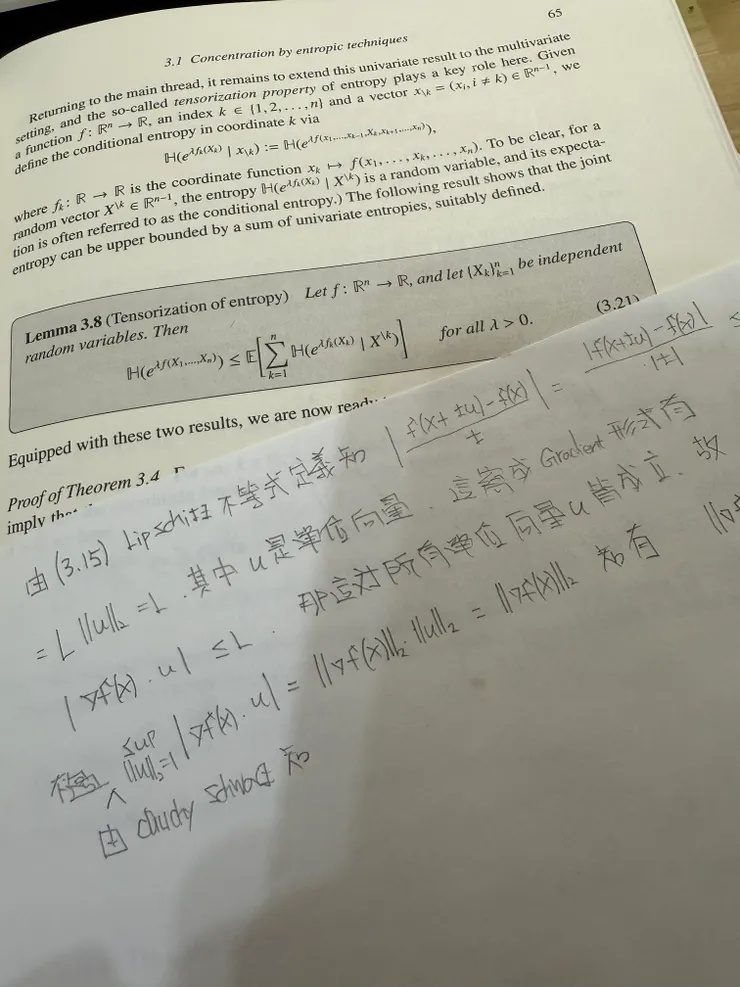 65
3.1 Concentration by entropic techniques
Returning to the main thread, it remains to extend this univariate result to the multivariate
setting, and the so-called tensorization property of entropy plays a key role here. Given
a function f : ℝⁿ → ℝ, an index k ∈ {1, 2, . . . , n} and a vector x\k = (xᵢ, i ≠ k) ∈ ℝⁿ⁻¹, we
define the conditional entropy in coordinate k via
ℍ(e^{λfₖ(Xₖ)} | x\k) := ℍ(e^{λf(x₁,...,xₖ₋₁,Xₖ,xₖ₊₁,...,xₙ)}),
where fₖ : ℝ → ℝ is the coordinate function xₖ ↦ f(x₁, . . . , xₖ, . . . , xₙ). To be clear, for a
random vector X\k ∈ ℝⁿ⁻¹, the entropy ℍ(e^{λfₖ(Xₖ)} | X\k) is a random variable, and its expecta-
tion is often referred to as the conditional entropy.) The following result shows that the joint
entropy can be upper bounded by a sum of univariate entropies, suitably defined.
Lemma 3.8 (Tensorization of entropy) Let f : ℝⁿ → ℝ, and let {Xₖ}ⁿₖ₌₁ be independent
random variables. Then
ℍ(e^{λf(X₁,...,Xₙ)}) ≤ 𝔼[∑ⁿₖ₌₁ ℍ(e^{λfₖ(Xₖ)} | X\k)] for all λ > 0. (3.21)
Equipped with these two results, we are now
Proof of Theorem 3.4
imply
由 (3.15) Lipschitz 不等式定義知 |(f(x+tu)-f(x))/t| = |f(x+tu)-f(x)|/|t| ≤
= L‖u‖₂ = L . 其中 u 是單位向量 . 這寫成 Gradient 形式有
|∇f(x)·u| ≤ L . 那這對所有單位向量 u 皆成立 . 故
sup ‖u‖₂=1 |∇f(x)·u| = ‖∇f(x)‖₂ ‖u‖₂ = ‖∇f(x)‖₂ 知有
由 cauchy 知